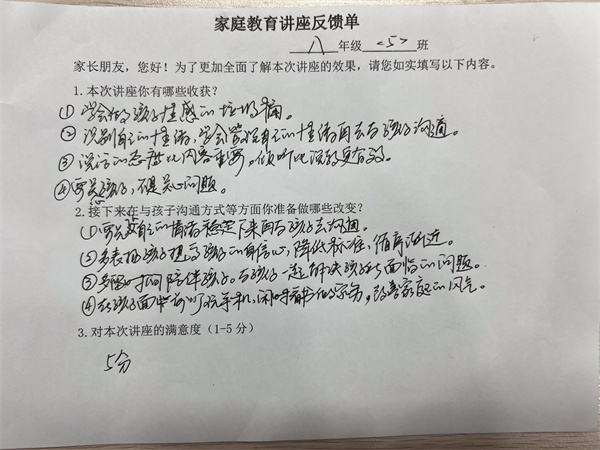 家庭教育讲座反馈单
八 年级 <5> 班
家长朋友，您好！为了更加全面了解本次讲座的效果，请您如实填写以下内容。
1.本次讲座你有哪些收获？
① 学会做孩子情感的垃圾桶。
② 识别自己的情绪，学会管理自己的情绪再去与孩子沟通。
③ 说话的态度比内容重要，倾听比说教更有效。
④ 要关心孩子，不是关心问题。
2.接下来在与孩子沟通方式等方面你准备做哪些改变？
① 要先将自己的情绪稳定下来再与孩子去沟通。
② 多表扬孩子提高孩子的自信心，降低标准，循序渐近。
③ 多留时间陪伴孩子。与孩子一起解决孩子所面临的问题。
④ 在孩子面前少玩手机，闲时看书做家务，改善家庭的风气。
3.对本次讲座的满意度（1-5 分）
5分